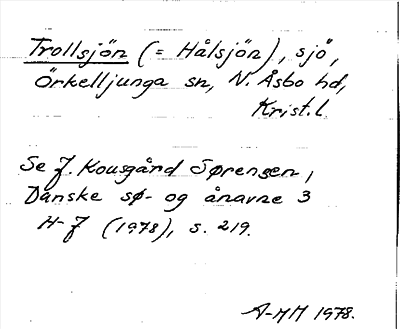 Trollsjön (= Hålsjön), sjö,
Örkelljunga sn, N. Åsbo hd,
Krist.l.
Se J. Kousgård Sørensen,
Danske sø- og ånavne 3
H-J (1978), s. 219.
A-MH 1978.